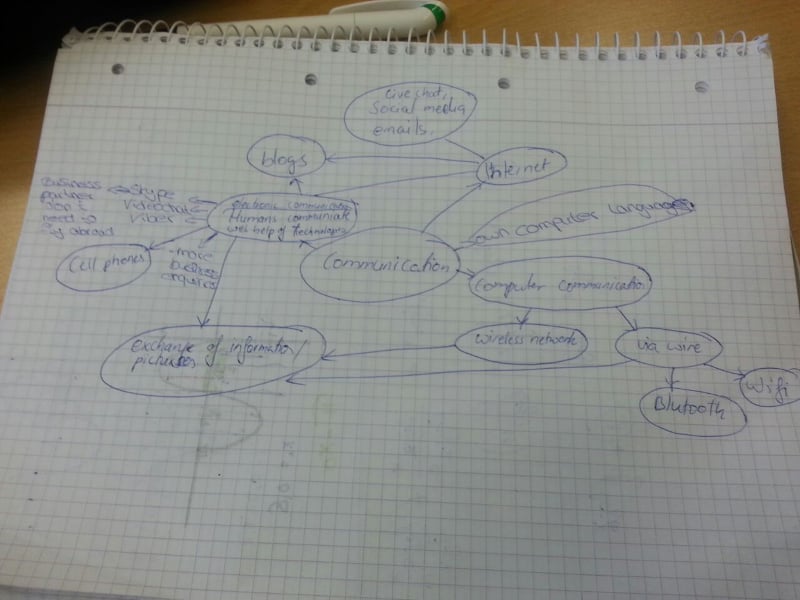 Live chat,
Social media
emails.
blogs
Internet
Business
partner
don't
need to
abroad
Skype
Videochat
Viber
electronic communication
Humans communicate
with help of Technologies
own computer languages
Cell phones
more
business
Communication
Computer communication
Exchange of information/
wireless network
via wire
Wifi
Blutooth